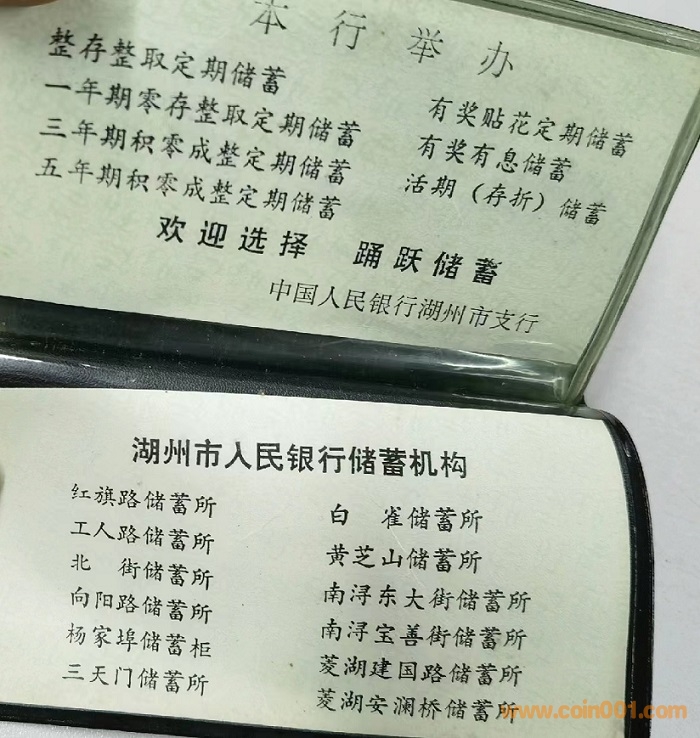 本行举办
整存整取定期储蓄
一年期零存整取定期储蓄
三年期积零成整定期储蓄
五年期积零成整定期储蓄
有奖贴花定期储蓄
有奖有息储蓄
活期（存折）储蓄
欢迎选择 踊跃储蓄
中国人民银行湖州市支行
湖州市人民银行储蓄机构
红旗路储蓄所
工人路储蓄所
北 街储蓄所
向阳路储蓄所
杨家埠储蓄柜
三天门储蓄所
白 雀储蓄所
黄芝山储蓄所
南浔东大街储蓄所
南浔宝善街储蓄所
菱湖建国路储蓄所
菱湖安澜桥储蓄所
www.coin001.com